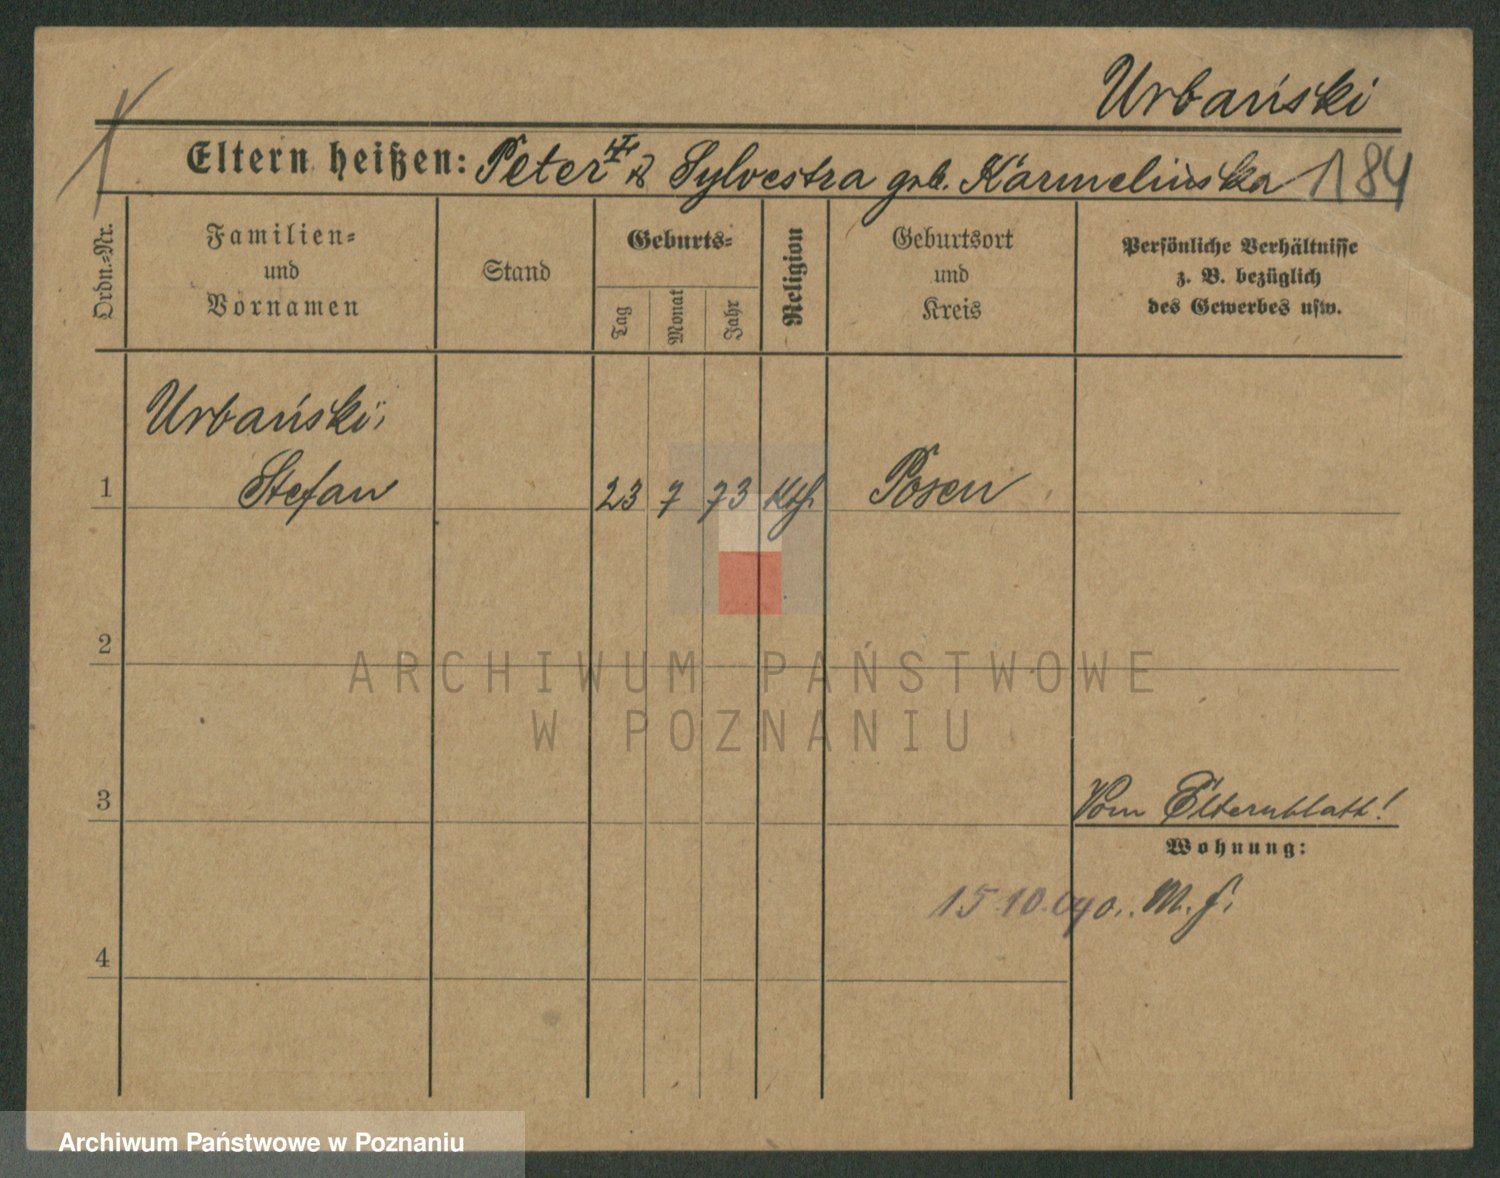 Urbański
Eltern heißen: Peter & Sylvestra geb. Karmelinska 184
Ordn.-Nr.
Familien-
und
Vornamen
Stand
Geburts-
Tag
Monat
Jahr
Religion
Geburtsort
und
Kreis
Persönliche Verhältnisse
z. B. bezüglich
des Gewerbes usw.
Urbański,
1 Stefan 23 7 73 Kth. Posen
2
ARCHIWUM PAŃSTWOWE
W POZNANIU
3
Vom Elternblatt!
Wohnung:
15.10.
4
Archiwum Państwowe w Poznaniu